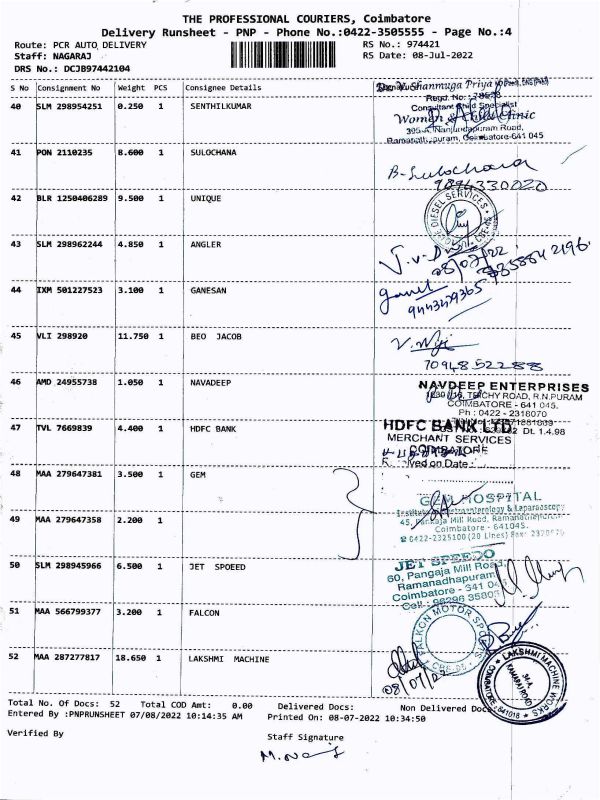 THE PROFESSIONAL COURIERS, Coimbatore
Delivery Runsheet - PNP - Phone No.:0422-3505555 - Page No.:4
Route: PCR AUTO DELIVERY
RS No.: 974421
Staff: NAGARAJ
RS Date: 08-Jul-2022
DRS No.: DCJB97442104
S No Consignment No Weight PCS Consignee Details
40 SLM 298954251 0.250 1 SENTHILKUMAR
Shanmuga Priya
Regd. No.
Consultant
Specialist
Women
Clinic
Nanjundapuram Road,
Coimbatore-641 045
41 PON 2110235 8.600 1 SULOCHANA
B-Sulochana
9894330020
42 BLR 1250406289 9.500 1 UNIQUE
DIESEL SERVICES
43 SLM 298962244 4.850 1 ANGLER
08/07/22
44 IXM 501227523 3.100 1 GANESAN
45 VLI 298920 11.750 1 BEO JACOB
7094852288
46 AMD 24955738 1.050 1 NAVADEEP
NAVDEEP ENTERPRISES
TRICHY ROAD, R.N.PURAM
COIMBATORE - 641 045.
Ph : 0422 - 2318070
47 TVL 7669839 4.400 1 HDFC BANK
Dt. 1.4.98
HDFC BANK LTD
MERCHANT SERVICES
COIMBATORE
on Date
48 MAA 279647381 3.500 1 GEM
GEM HOSPITAL
Institute
& Laparoscopy
45, Pankaja Mill Road, Ramanathapuram
Coimbatore - 641045.
0422-2325100 (20 Lines) Fax:
49 MAA 279647358 2.200 1
50 SLM 298945966 6.500 1 JET SPOEED
JET SPEEDO
60, Pangaja Mill Road,
Ramanadhapuram
Coimbatore - 641 04
Cell :
51 MAA 566799377 3.200 1 FALCON
FALKON MOTOR SPORTS
CBE-45
52 MAA 287277817 18.650 1 LAKSHMI MACHINE
08/07/22
LAKSHMI MACHINE WORKS
34-A,
KAMARAJ ROAD
COIMBATORE 641018
Total No. Of Docs: 52 Total COD Amt: 0.00 Delivered Docs: Non Delivered Docs
Entered By :PNPRUNSHEET 07/08/2022 10:14:35 AM Printed On: 08-07-2022 10:34:50
Verified By
Staff Signature